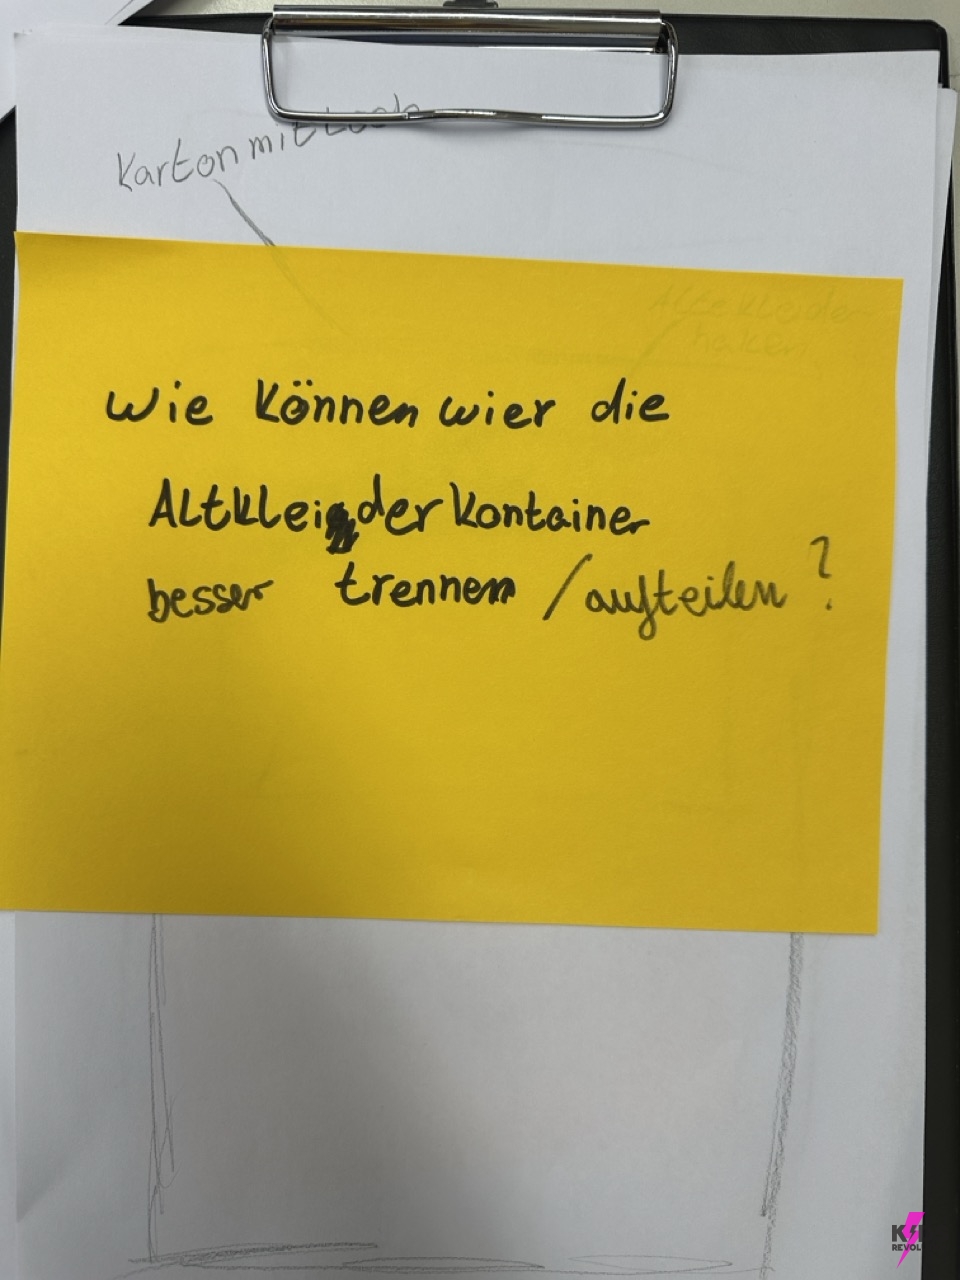 Karton mit Loch
Alte Kleider
haken
Wie können wier die
Altkleider Kontainer
besser trennen / aufteilen?
K
REVOL